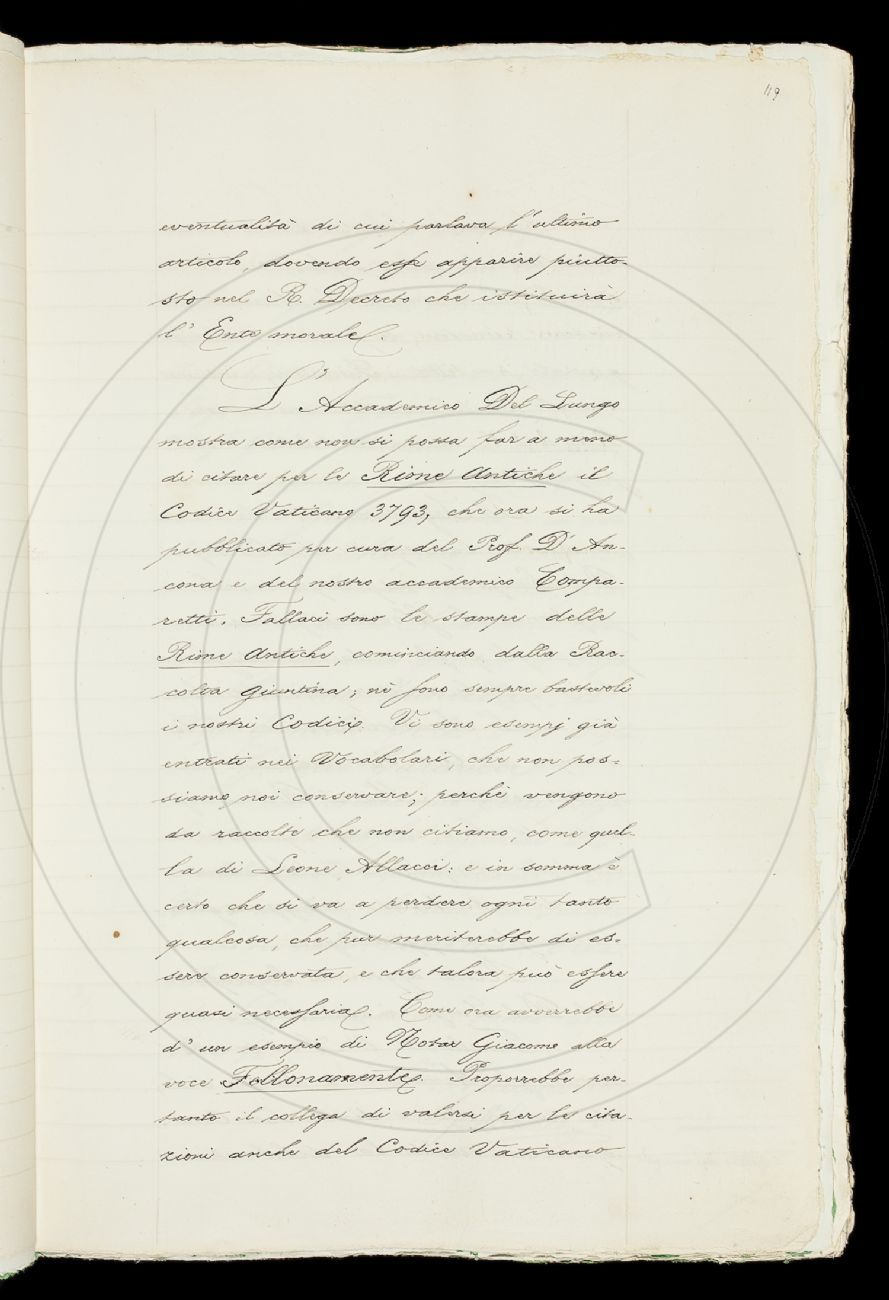 119
eventualità di cui parlava l'ultimo
articolo, dovendo esse apparire piutto-
sto nel R. Decreto che istituirà
l'Ente morale.
L'Accademico Del Lungo
mostra come non si possa far a meno
di citare per le Rime Antiche il
Codice Vaticano 3793, che ora si ha
pubblicato per cura del Prof. D'An-
cona e del nostro accademico Compa-
retti. Fallaci sono le stampe delle
Rime Antiche, cominciando dalla Rac-
colta Giuntina; nè sono sempre bastevoli
i nostri Codici. Vi sono esempj già
entrati nei Vocabolari, che non pos-
siamo noi conservare; perchè vengono
da raccolte che non citiamo, come quel-
la di Leone Allacci: e in somma è
certo che si va a perdere ogni tanto
qualcosa, che pur meriterebbe di es-
sere conservata, e che talora può essere
quasi necessaria. Come ora avverrebbe
d'un esempio di Notar Giacomo alla
voce Follonamente. Proporrebbe per-
tanto il collega di valersi per le cita-
zioni anche del Codice Vaticano